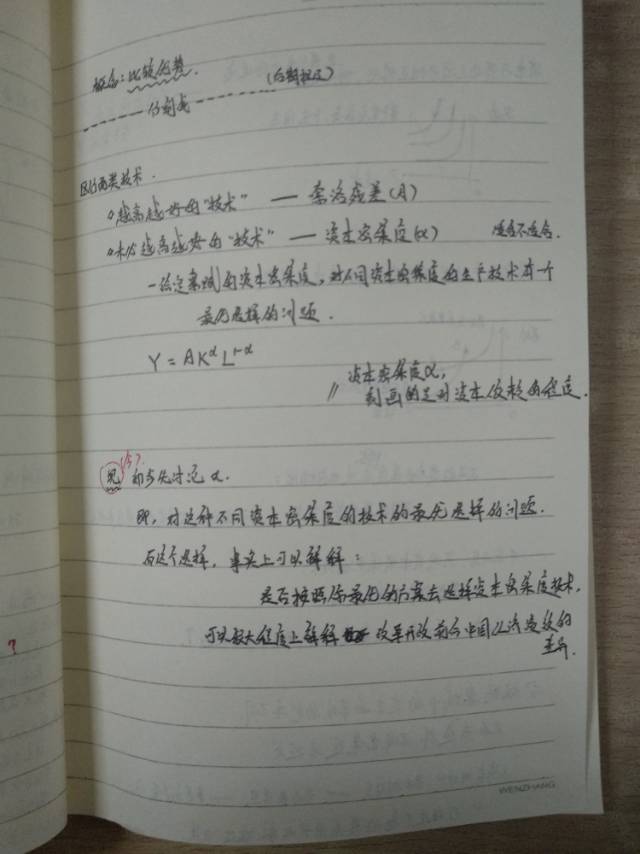 概念：比较优势. (后期提过)
区分两类技术.
①越高越好的"技术" —— 索洛残差(A)
②未必越高越好的"技术" —— 资本密集度(α) 适合不适合.
—给定某测的资本密集度，对不同资本密集度的生产技术有一个
最优选择的问题.
Y = AK^α L^1-α
// 资本密集度α,
刻画的是对资本依赖的程度.
先讨论 α.
即，对这种不同资本密集度的技术的最优选择的问题.
而这个选择，事实上可以解释：
是否按照你最优的方案去选择资本密集度技术,
可以较大程度上解释 改革开放前后中国经济发展的
差异.
?
WENZHANG